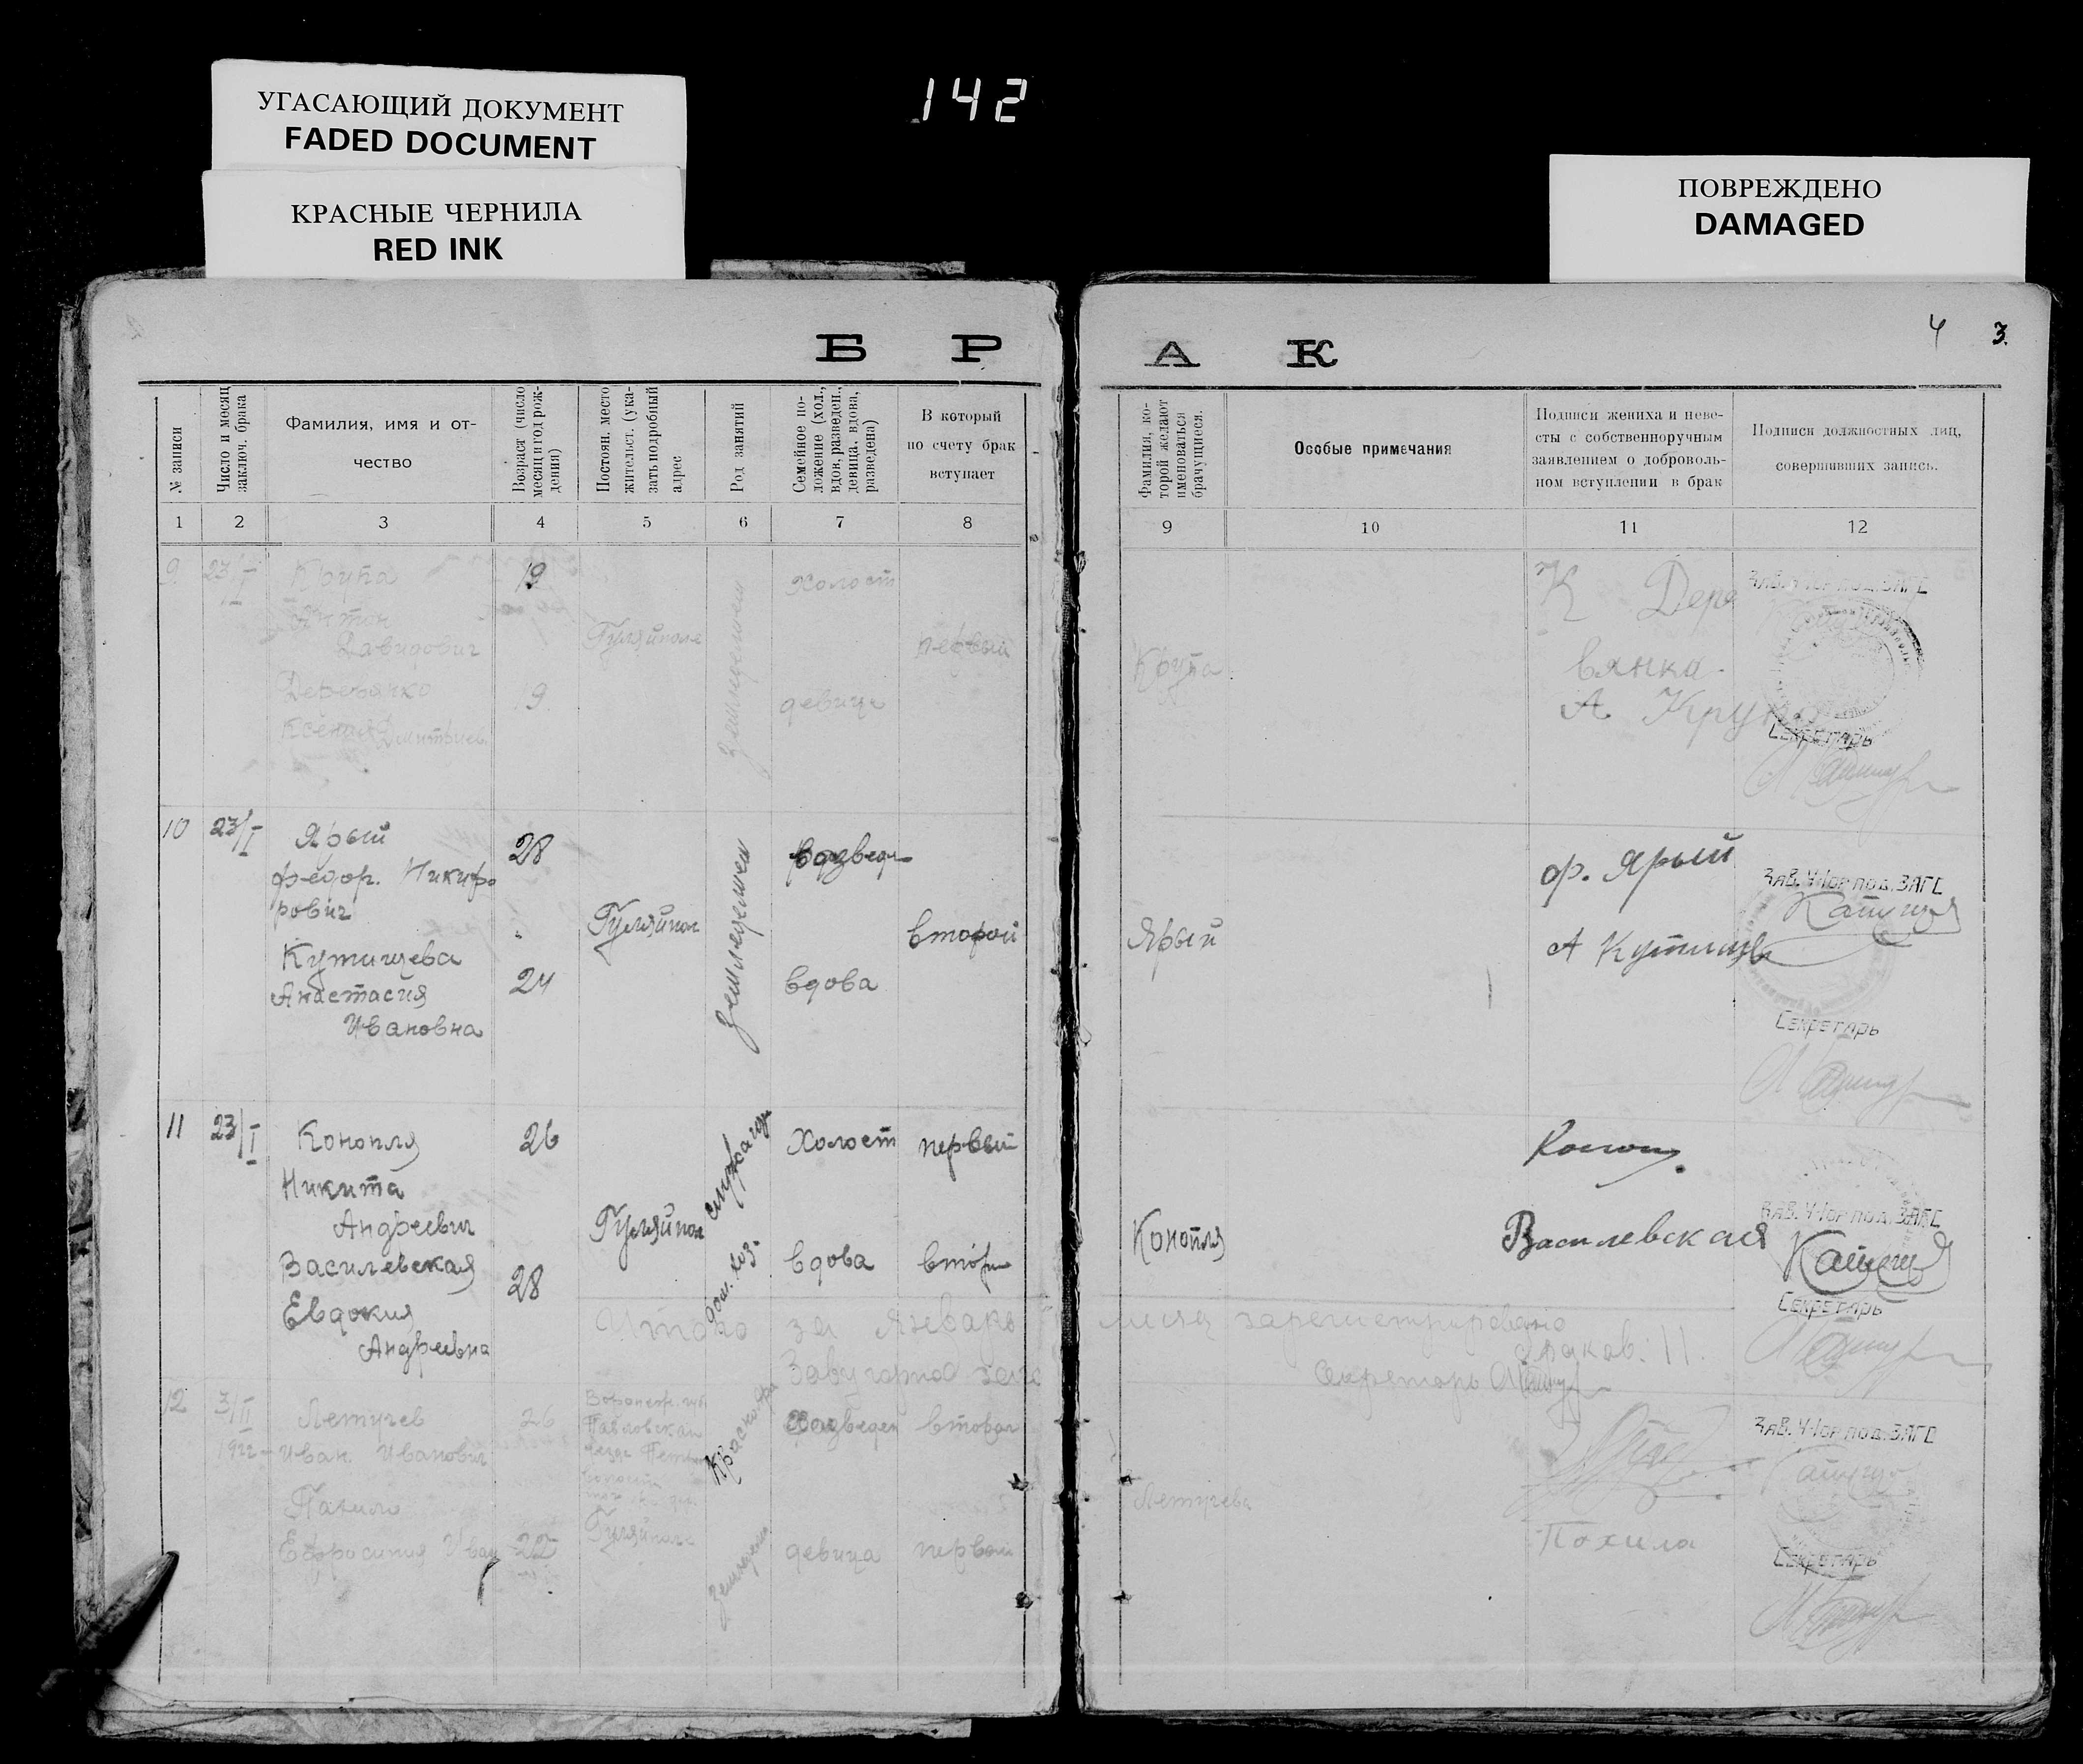 УГАСАЮЩИЙ ДОКУМЕНТ
FADED DOCUMENT
КРАСНЫЕ ЧЕРНИЛА
RED INK
142
ПОВРЕЖДЕНО
DAMAGED
Б Р
А К
4 3.
№ записи
Число и месяц
заключ. брака
Фамилия, имя и от-
чество
Возраст (число
месяц и год рож-
дения)
Постоян. место
жительст. (ука-
зать подробный
адрес
Род занятий
Семейное по-
ложение (хол.,
вдов, разведен.,
девица, вдова,
разведена)
В который
по счету брак
вступает
Фамилия, ко-
торой желают
именоваться
брачущиеся.
Особые примечания
Подписи жениха и неве-
сты с собственноручным
заявлением о доброволь-
ном вступлении в брак
Подписи должностных лиц,
совершивших запись.
1 2 3 4 5 6 7 8
9 10 11 12
9 23/I
Крупа
Антон
Давидович
19
Деревянко
Ксения Дмитриев.
19
Гуляйполе
холост
девица
первый
Крупа
К Дере
вянко.
А Крупа
Зав. У-Гор под. ЗАГС
Секретарь
10 23/I
Ярый
Федор. Никифо
рович
28
Кутищева
Анастасия
Ивановна
24
Гуляйпол
Земледелец
развед
вдова
второй
Ярый
Ф. Ярый
А Кутищев
Зав. У-Гор под. ЗАГС
Секретарь
11 23/I
Конопля
Никита
Андреевич
26
Василевская
Евдокия
Андреевна
28
Гуляйпол
дом. хоз.
Холост
вдова
первый
втор
Конопля
Василевская
Зав. У-Гор под. ЗАГС
Секретарь
Итого за Январь месяц зарегистрировано
браков: 11.
Секретарь
12 3/II
1922
Летучев
Иван. Иванович
26
Ефросиния Иван
22
Воронеж. губ
Павловскаи
Гуляйполе
разведен
девица
второй
первый
Летучева
Похила
Зав. У-Гор под. ЗАГС
Секретарь